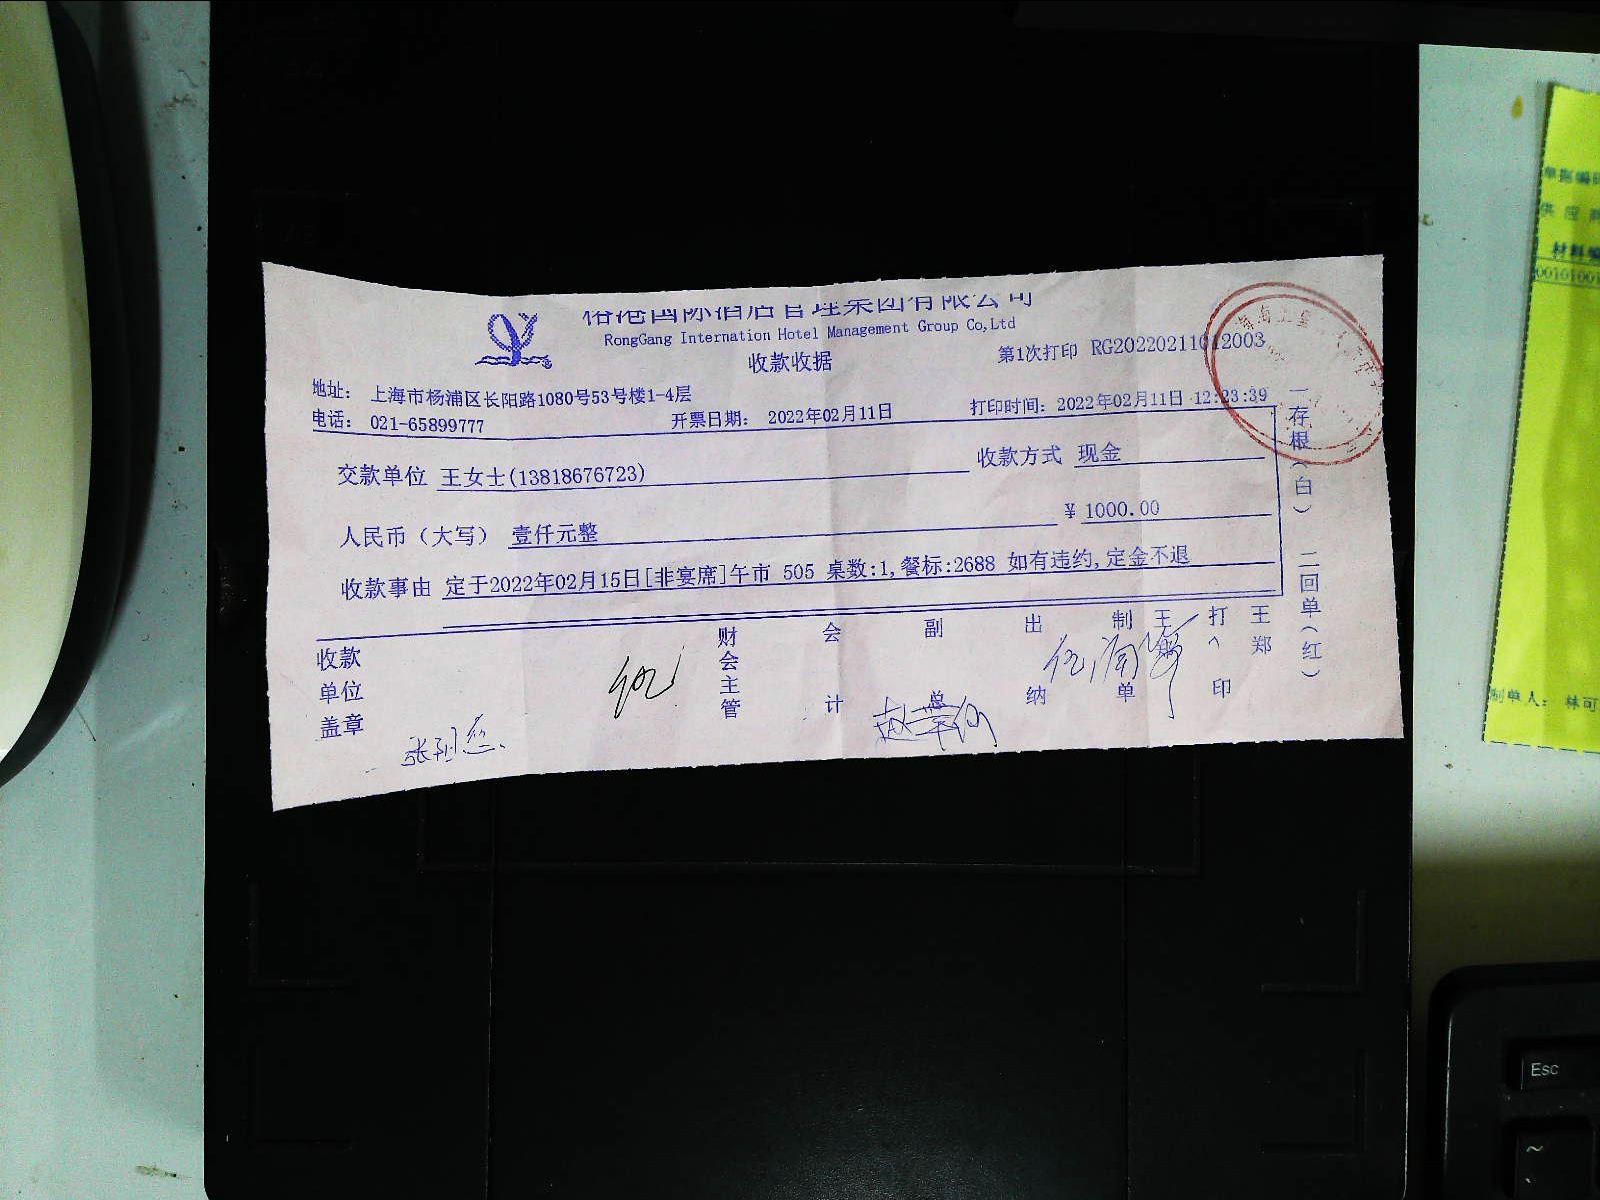 裕港国际酒店管理集团有限公司
RongGang Internation Hotel Management Group Co,Ltd
收款收据
第1次打印 RG20220211012003
地址： 上海市杨浦区长阳路1080号53号楼1-4层
电话： 021-65899777
开票日期： 2022年02月11日
打印时间：2022年02月11日 12:23:39
交款单位 王女士(13818676723)
收款方式 现金
人民币（大写） 壹仟元整
￥ 1000.00
收款事由 定于2022年02月15日[非宴席]午市 505 桌数:1,餐标:2688 如有违约,定金不退
一存根（白） 二回单（红）
收款单位盖章
财会主管
会计
副总
出纳
制单
王
打印
王郑
单据编
供应商
材料编
制单人： 林可
Esc
~